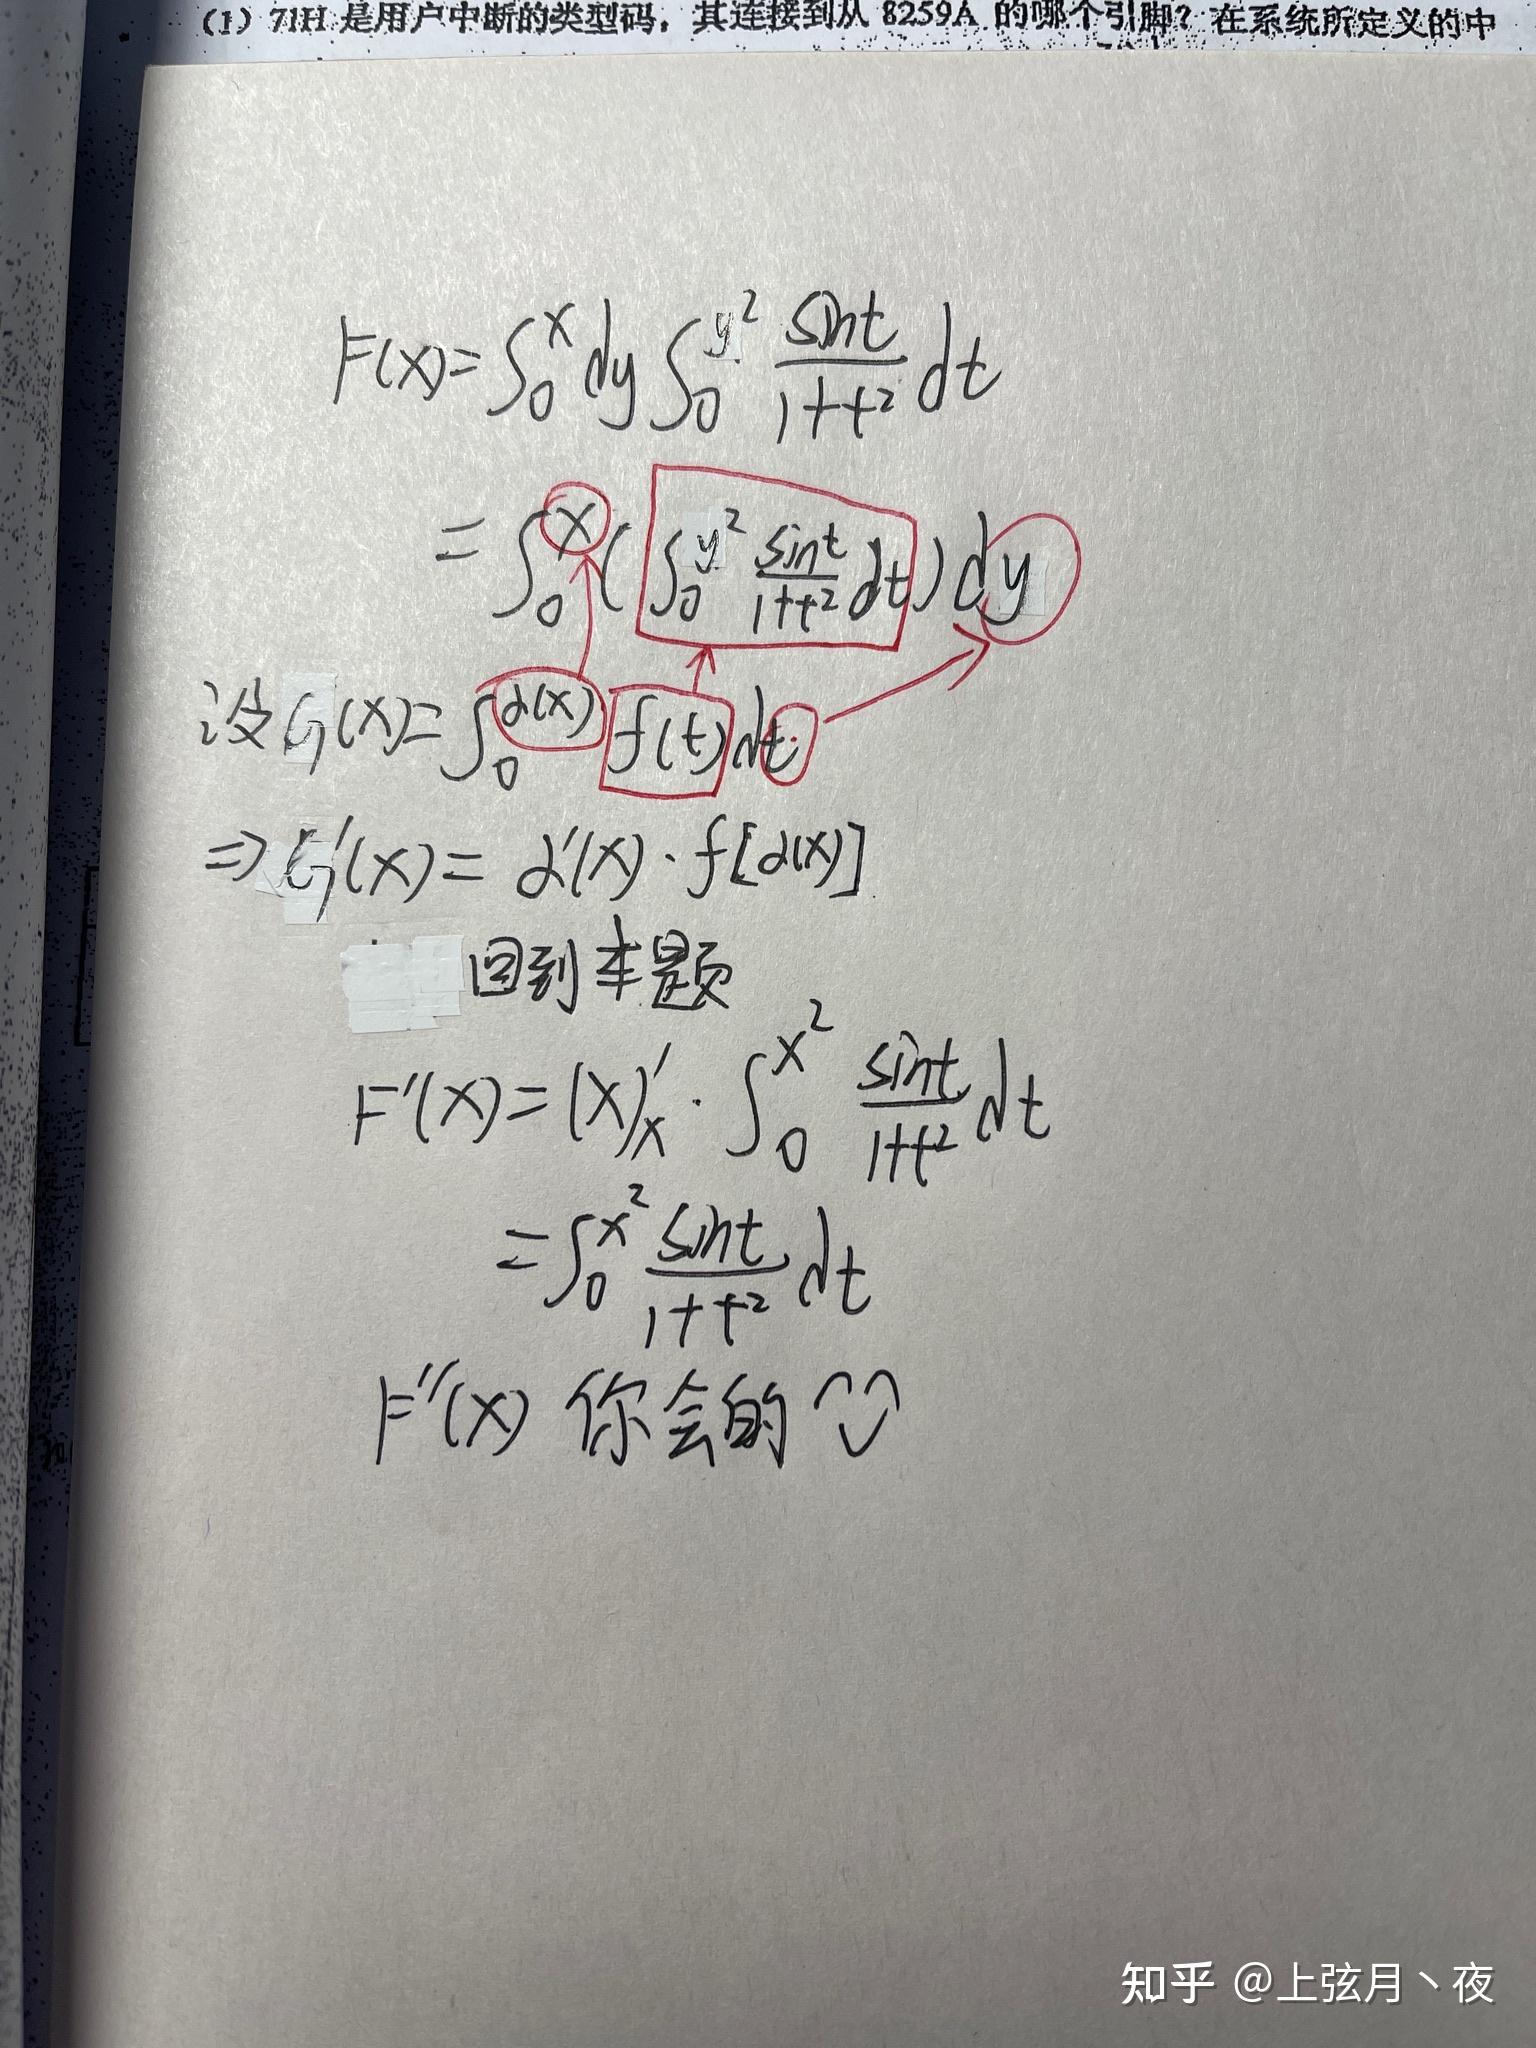 （1）71H 是用户中断的类型码，其连接到从 8259A 的哪个引脚？在系统所定义的中
F(x)=∫₀ˣdy∫₀^{y²} \frac{sint}{1+t²}dt
=∫₀ˣ(∫₀^{y²} \frac{sint}{1+t²}dt)dy
设G(x)=∫₀^{α(x)}f(t)dt
⇒G'(x)=α'(x)·f[α(x)]
回到本题
F'(x)=(x)'ₓ·∫₀^{x²} \frac{sint}{1+t²}dt
=∫₀^{x²} \frac{sint}{1+t²}dt
F''(x) 你会的
知乎 @上弦月丶夜